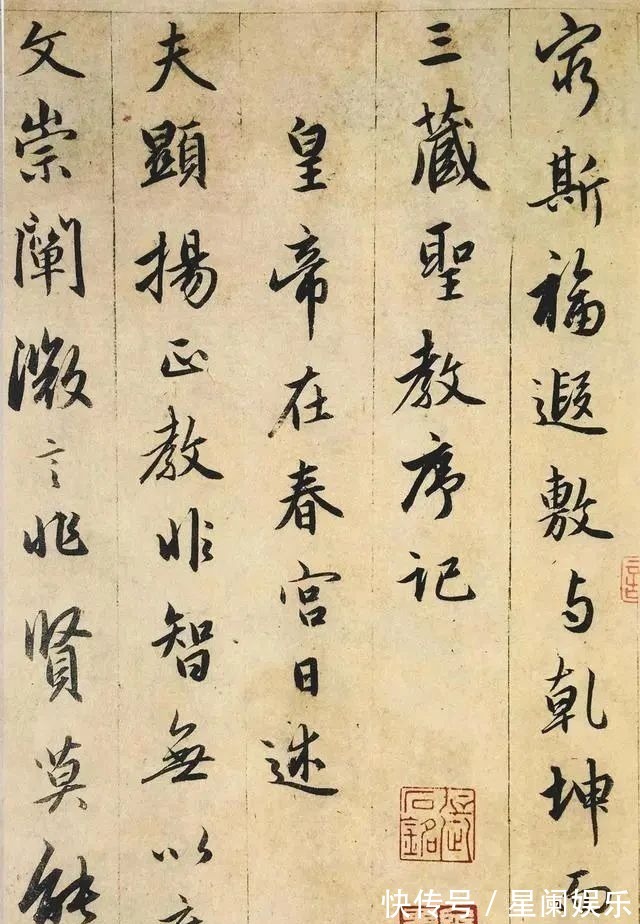 窮斯福遐敷与乾坤而
三藏聖教序記
皇帝在春宮日述
夫顯揚正教非智無以廣
文崇闡微言非賢莫能
快传号/星阑娱乐